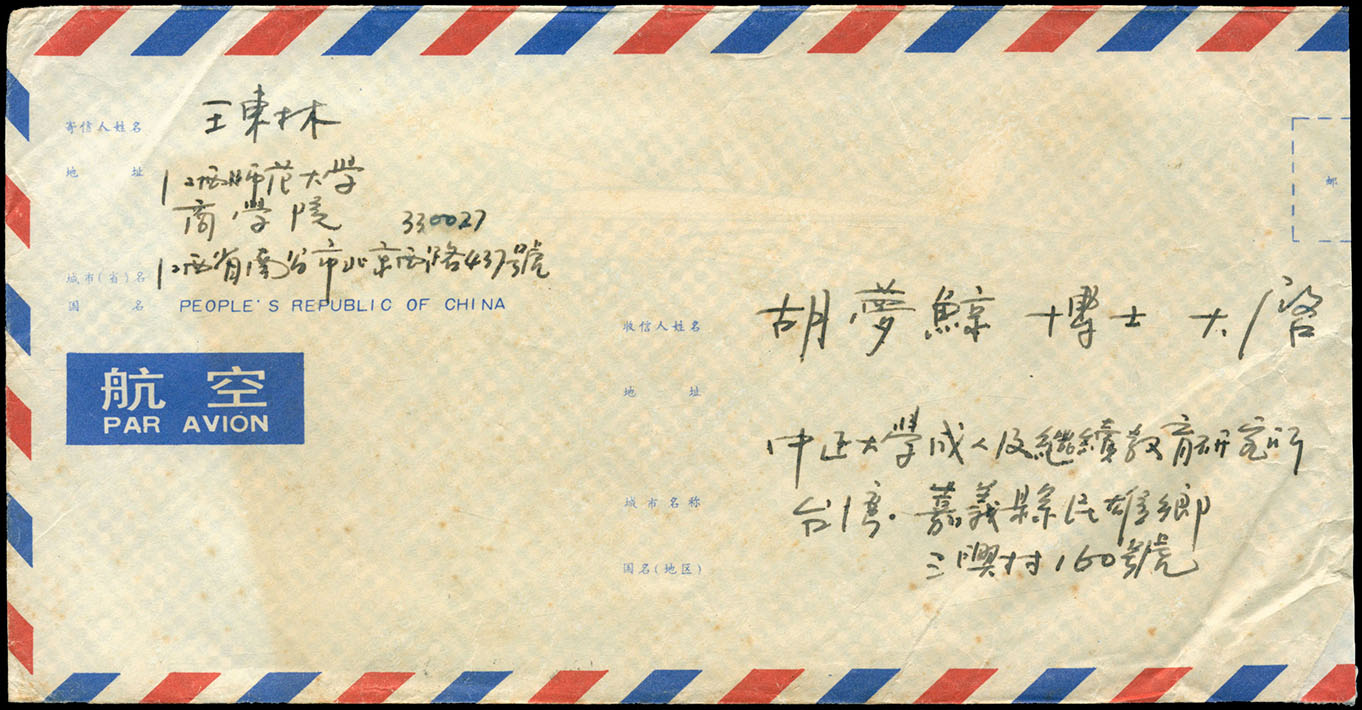 寄信人姓名 王東林
地 址 江西师范大學
商學院 330027
城市(省)名 江西省南昌市北京西路437號
国 名 PEOPLE'S REPUBLIC OF CHINA
航空
PAR AVION
邮
收信人姓名 胡夢鯨 博士 大啓
地 址
中正大學成人及繼續教育研究所
城市名称 台湾·嘉義縣民雄鄉
三興村160號
国名(地区)